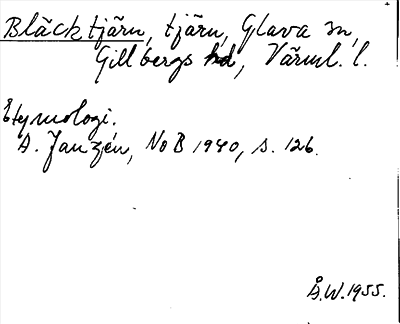 Bläcktjärn, tjärn, Glava sn,
Gillbergs hd, Värml. l.
Etymologi.
A. Janzén, NoB 1940, s. 126.
Å.W. 1955.